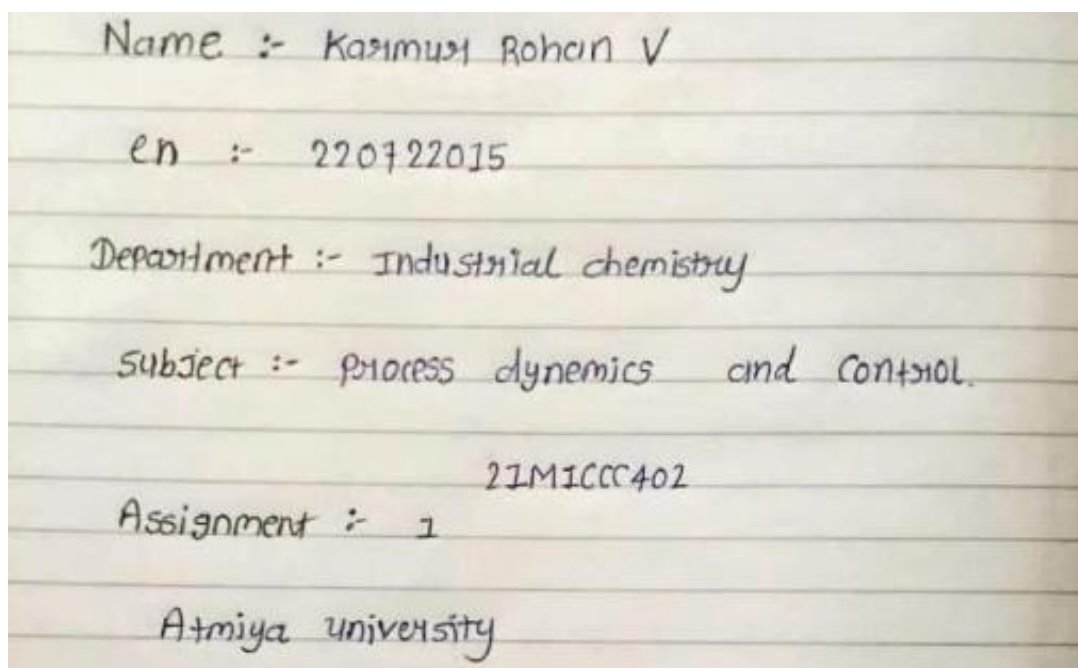 Name :- Karmur Rohan V
en :- 220722015
Department :- Industrial chemistry
Subject :- process dynemics and control.
21MICCC402
Assignment :- 1
Atmiya university